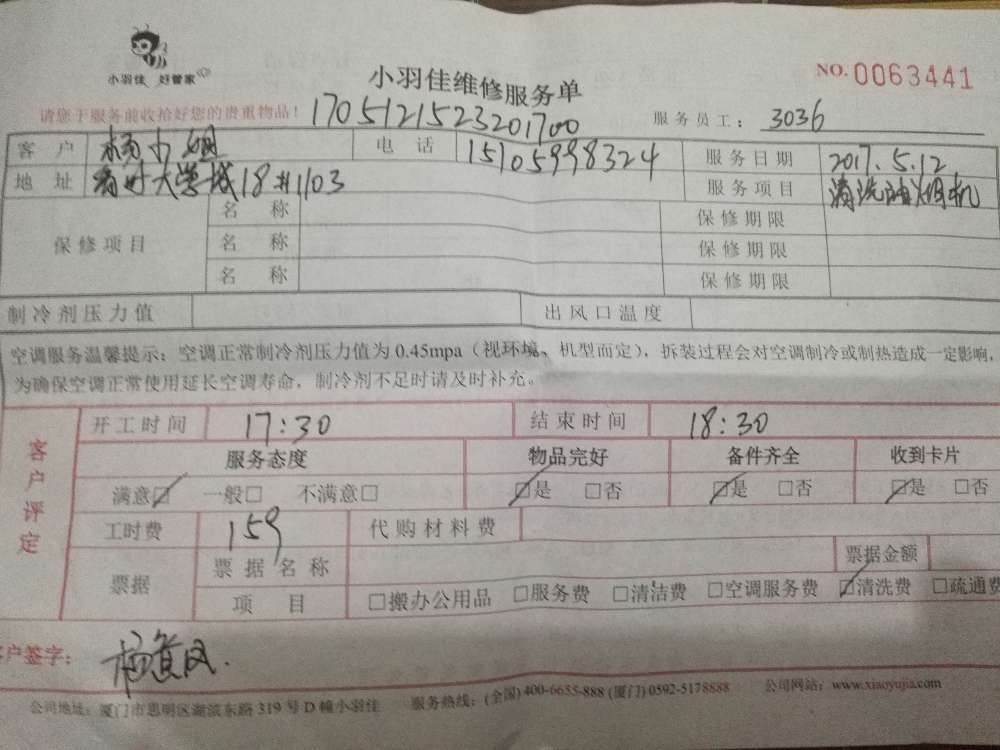 小羽佳 好管家
小羽佳维修服务单
NO. 0063441
请您于服务前收拾好您的贵重物品！ 1705121523201700 服务员工： 3036
客 户 杨小姐 电 话 15105998324 服务日期 2017.5.12
地 址 大学城18#1103 服务项目 清洗油烟机
保修项目 名 称 保修期限
名 称 保修期限
名 称 保修期限
制冷剂压力值 出风口温度
空调服务温馨提示：空调正常制冷剂压力值为 0.45mpa（视环境、机型而定），拆装过程会对空调制冷或制热造成一定影响，
为确保空调正常使用延长空调寿命，制冷剂不足时请及时补充。
客户评定
开工时间 17:30 结束时间 18:30
服务态度 物品完好 备件齐全 收到卡片
满意☑ 一般□ 不满意□ ☑是 □否 ☑是 □否 ☑是 □否
工时费 159 代购材料费
票据 票据名称 票据金额
项 目 □搬办公用品 □服务费 □清洁费 □空调服务费 ☑清洗费 □疏通费
客户签字：
公司地址：厦门市思明区湖滨东路 319 号 D 幢小羽佳 服务热线：(全国) 400-6655-888 (厦门) 0592-5178888 公司网站：www.xiaoyujia.com